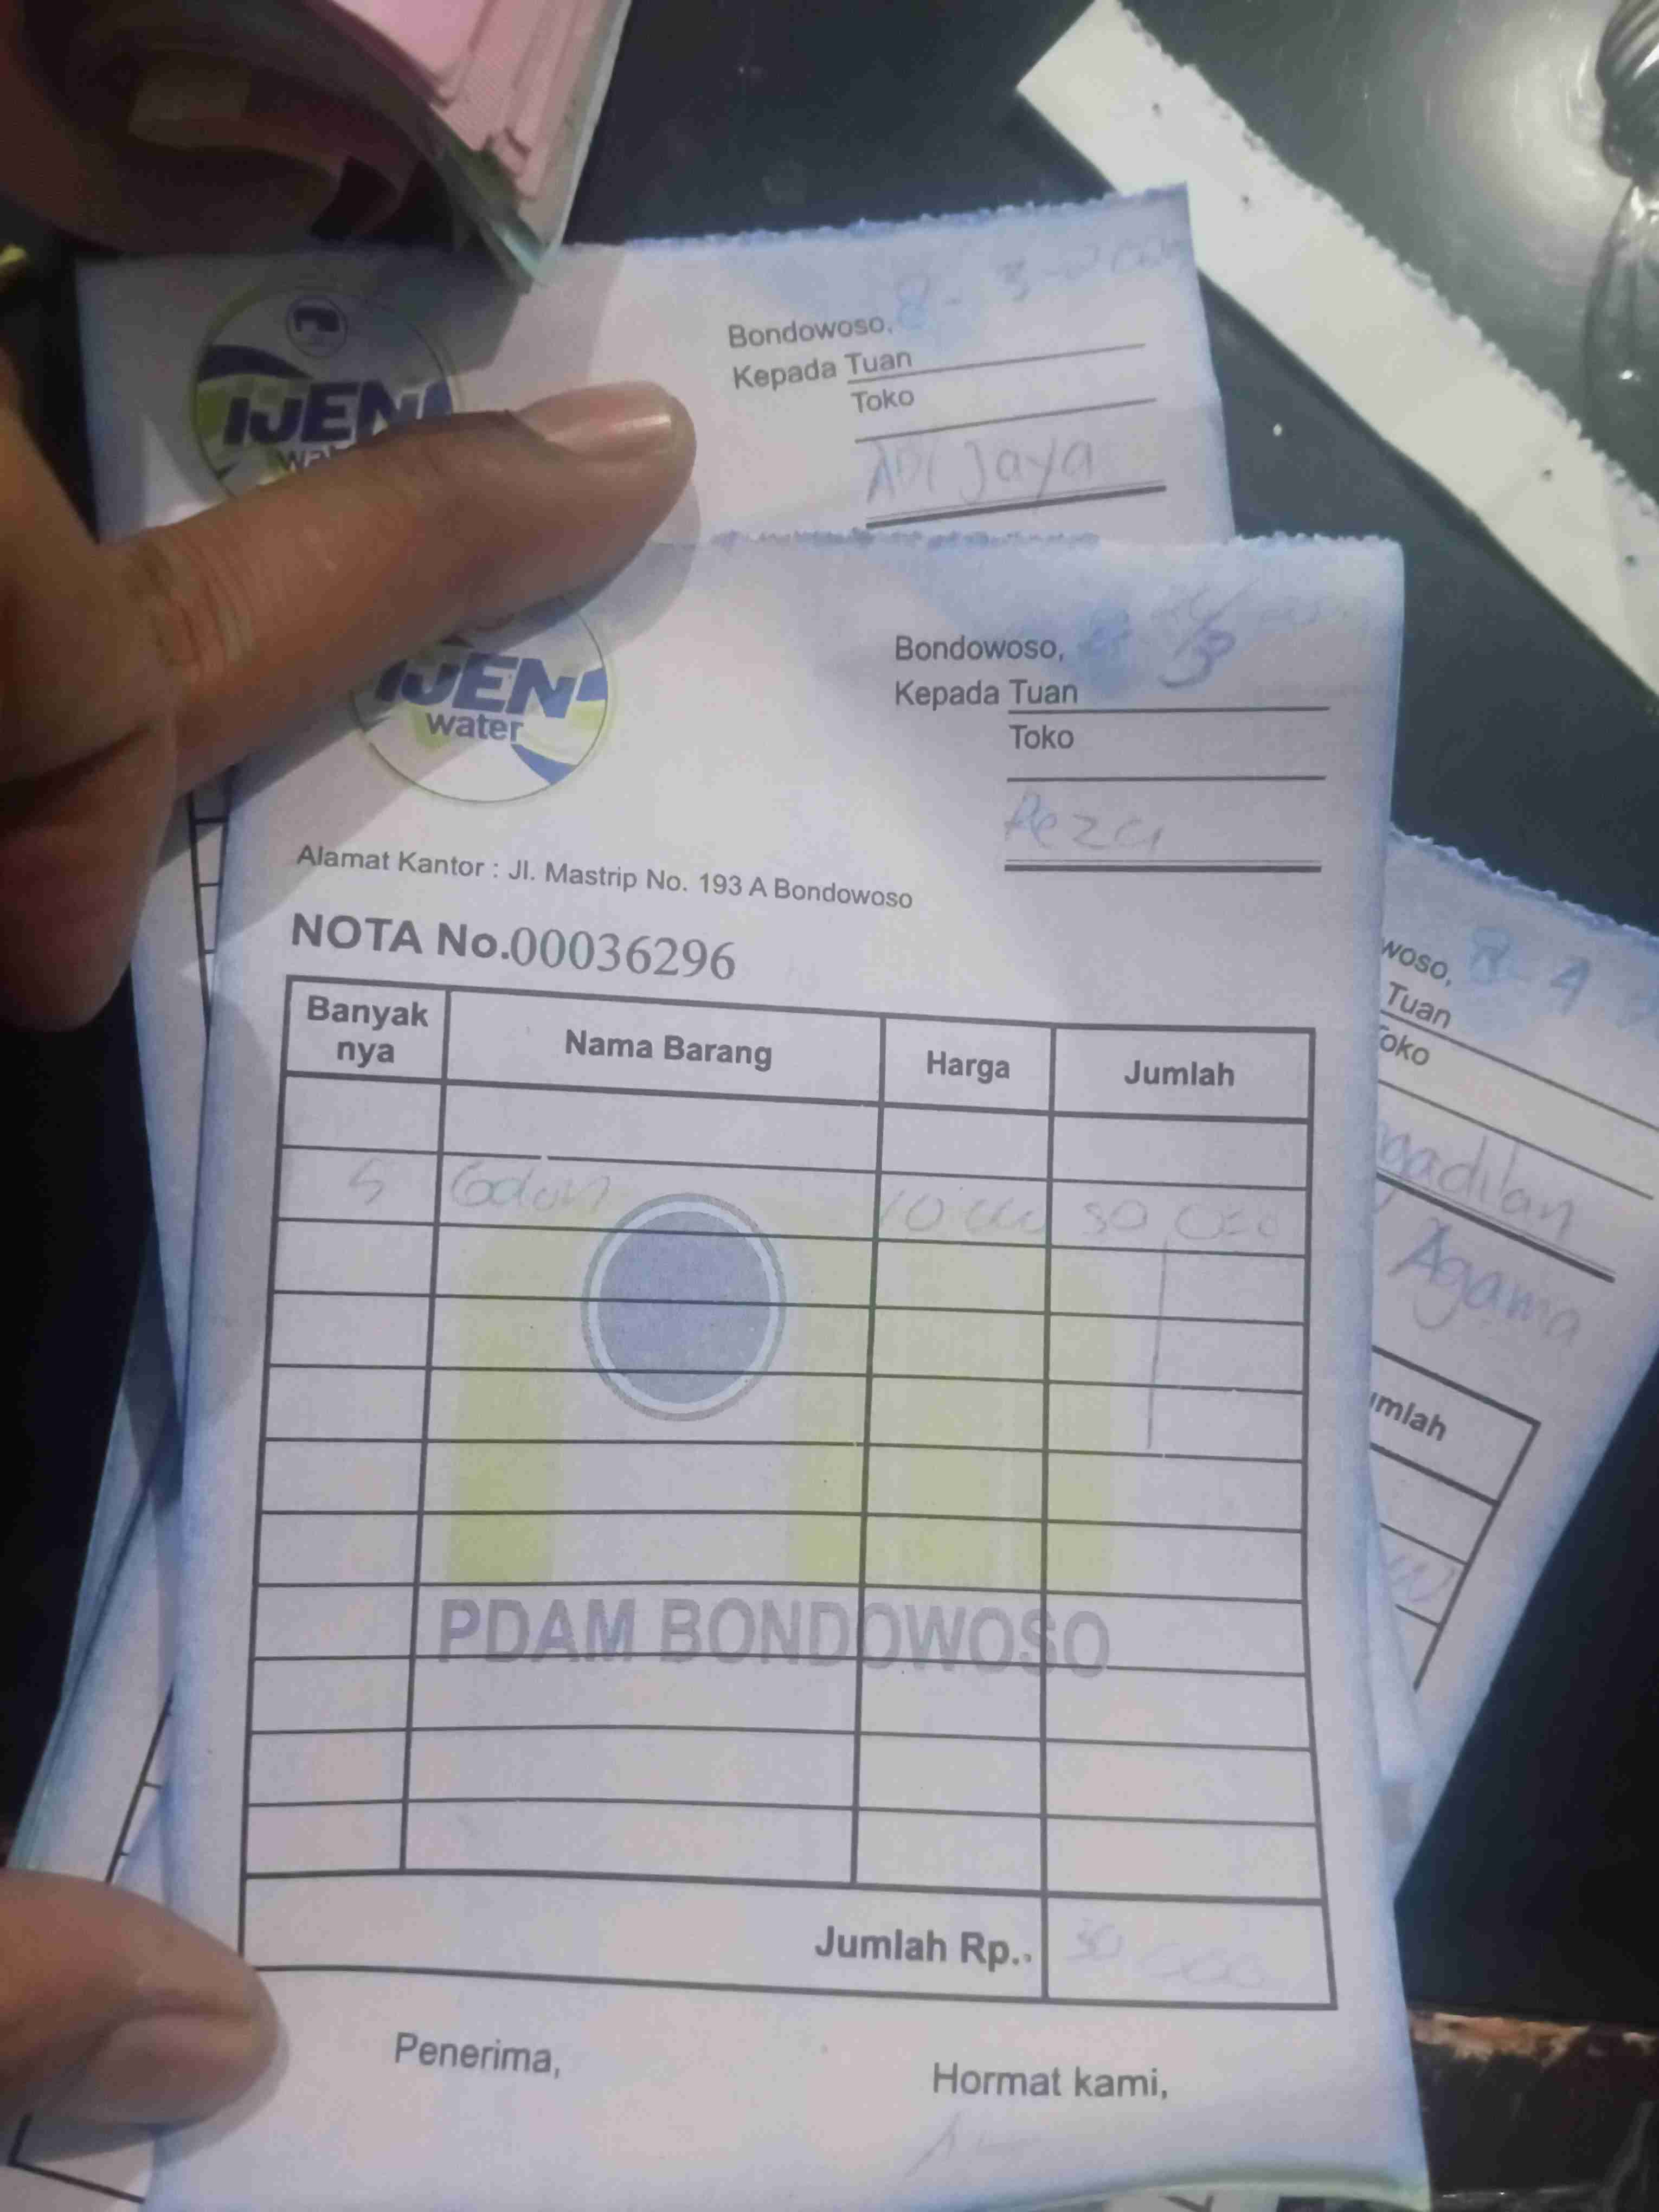 IJEN
Bondowoso, 8-3-20
Kepada Tuan
Toko
ADI Jaya
IJEN
water
Bondowoso,
Kepada Tuan
Toko
Reza
Alamat Kantor : Jl. Mastrip No. 193 A Bondowoso
NOTA No.00036296
Banyak nya Nama Barang Harga Jumlah
5 Galon 10 000
PDAM BONDOWOSO
Jumlah Rp..
Penerima,
Hormat kami,
woso, 4
Tuan
oko
gadilan
Agama
mlah